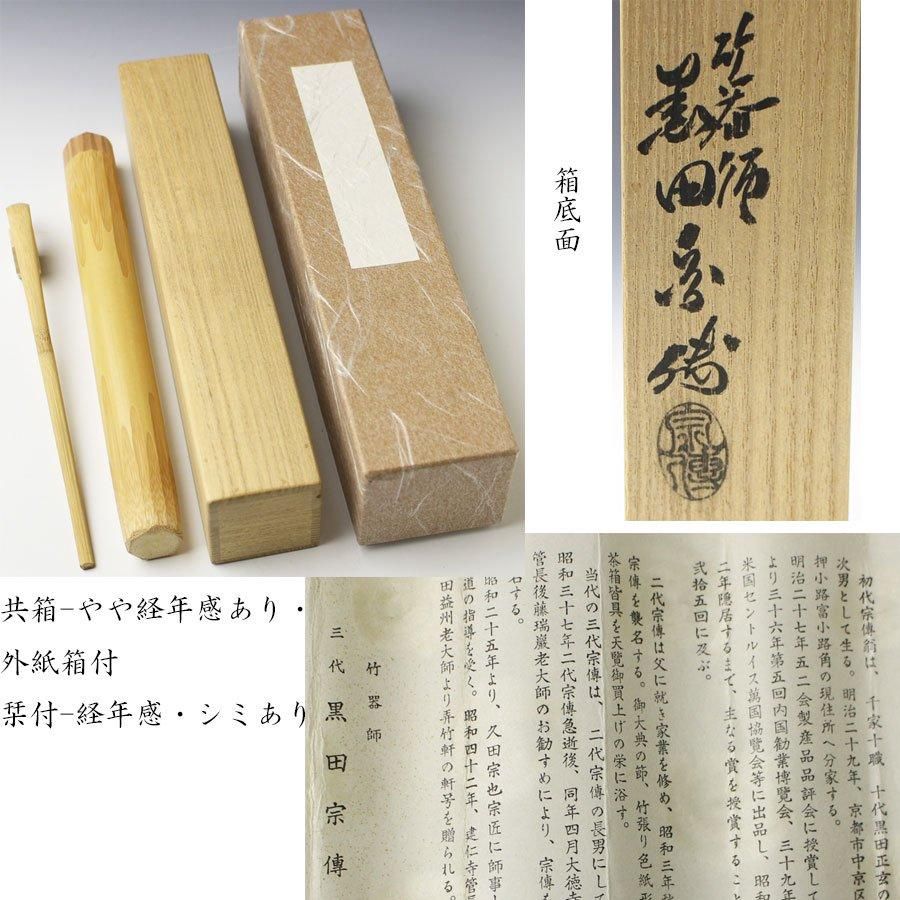 竹器師
黒田宗傳
宗傳
箱底面
共箱−やや経年感あり・
外紙箱付
栞付−経年感・シミあり
初代宗傳翁は、千家十職、十代黒田正玄の
次男として生る。明治二十九年、京都市中京区
押小路富小路角の現住所へ分家する。
明治二十七年五二会製産品品評会に授賞して
より三十六年第五回内国勧業博覧会、三十九年
米国セントルイス萬国協覧会等に出品し、昭和
二年隠居するまで、主なる賞を授賞すること
弐拾五回に及ぶ。
二代宗傳は父に就き家業を修め、昭和三年
宗傳を襲名する。御大典の節、竹張り色紙形
茶箱皆具を天覧御買上げの栄に浴す。
当代の三代宗傳は、二代宗傳の長男にして
昭和三十七年二代宗傳急逝後、同年四月大徳寺
管長後藤瑞巌老大師のお勧めにより、宗傳を
名する。
昭和二十五年より、久田宗也宗匠に師事
道の指導を受く。昭和四十二年、建仁寺管
田益州老大師より弄竹軒の軒号を贈られる。
竹器師
三代 黒田宗傳